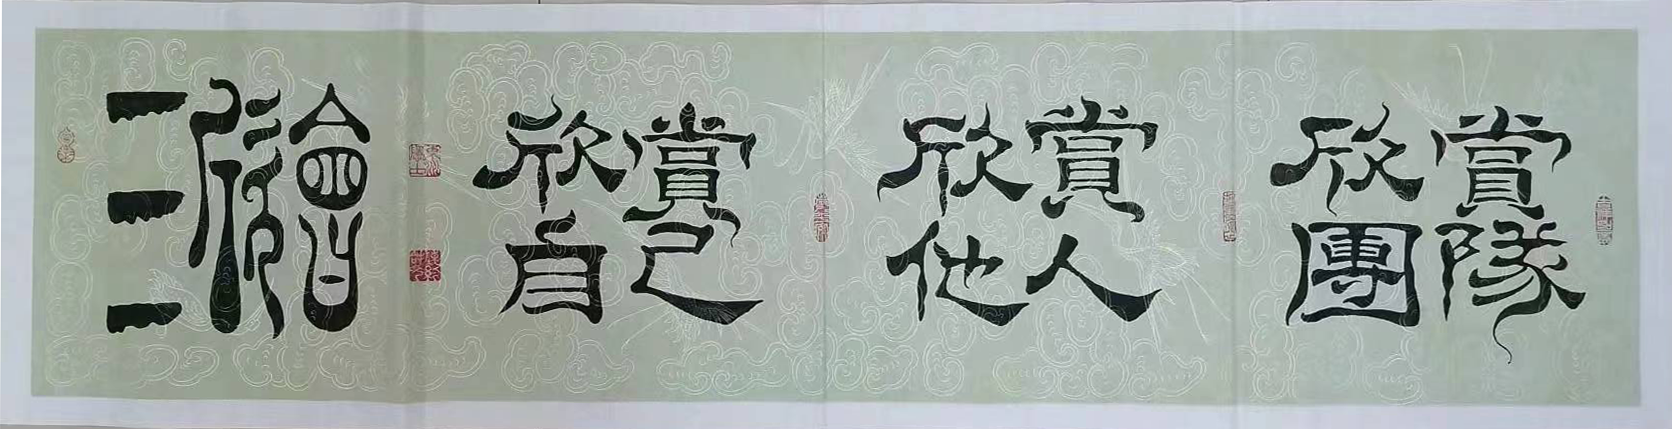 三欣會
欣賞
自己
欣賞
他人
欣賞
團隊